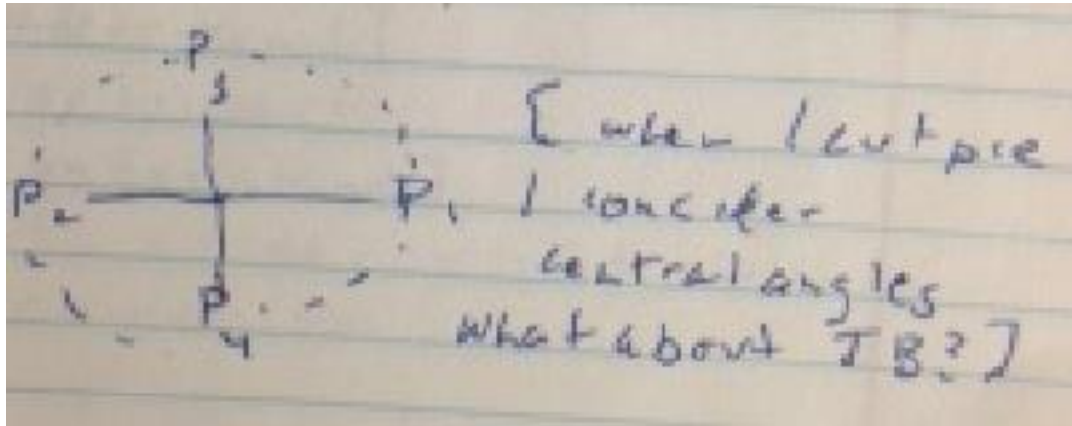 P3
P2
P1
P4
[when I cut pie
I concider
central angles
What about JB?]